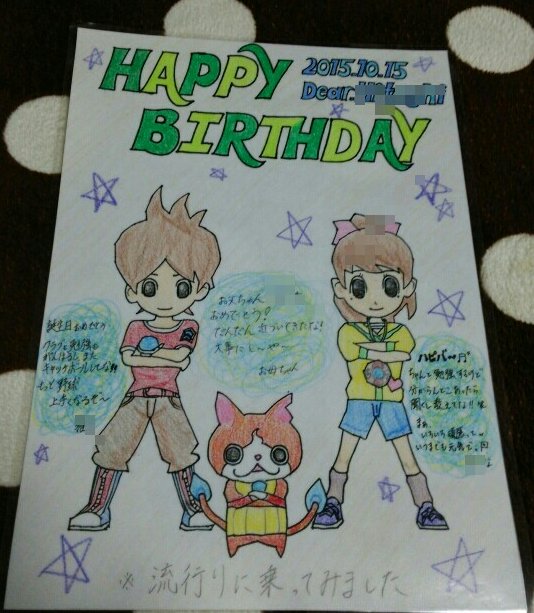 HAPPY
2015.10.15
Dear
BIRTHDAY
お兄ちゃん
おめでとう!
だんだん近づいてきたな!
大事にし〜や〜
お母ちゃん
誕生日おめでとう
クラブと勉強
がんばろ、また
キャッチボールしてな
もっと野球
上手くなるぜ〜
ハピバ〜
ちゃんと勉強するけど
分からんとこあったら
教えてな!!
まぁ、
いつまでも元気で
※ 流行りに乗ってみました